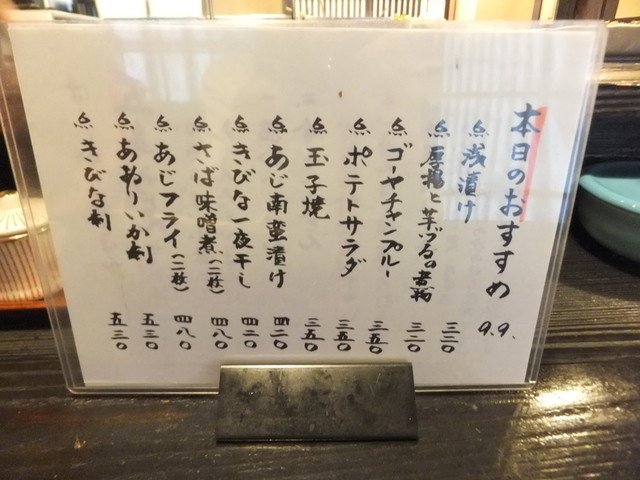 本日のおすすめ 9.9.
点 浅漬け 三三〇
点 厚揚と芋づるの煮物 三二〇
点 ゴーヤチャンプルー 三五〇
点 ポテトサラダ 三五〇
点 玉子焼 三五〇
点 あじ南蛮漬け 四二〇
点 きびな一夜干し 四二〇
点 さば味噌煮(二枚) 四八〇
点 あじフライ(二枚) 四八〇
点 あおりいか刺 五三〇
点 きびな刺 五三〇